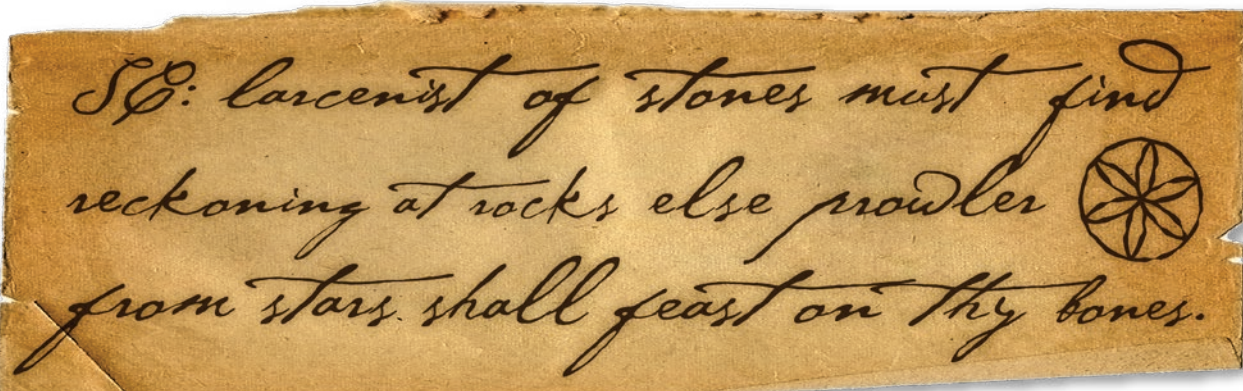 SE: larcenist of stones must find
reckoning at rocks else prowler
from stars shall feast on thy bones.